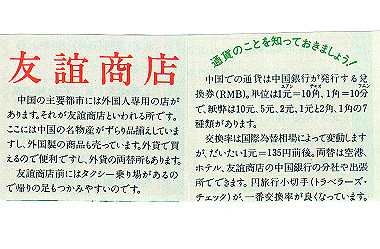 友誼商店
中国の主要都市には外国人専用の店が
あります。それが友誼商店といわれる所です。
ここには中国の名物産がずらり品揃えしていま
すし、外国製の商品も売っています。外貨で買
えるので便利ですし、外貨の両替所もあります。
友誼商店前にはタクシー乗り場があるの
で帰りの足もつかみやすいのです。
通貨のことを知っておきましょう!
中国での通貨は中国銀行が発行する兌
換券(RMB)。単位は1元=10角、1角=10分
ユアン チャオ フェン
で、紙弊は10元、5元、2元、1元と2角、1角の7
種類があります。
交換率は国際為替相場によって変動します
が、だいたい1元=135円前後。両替は空港、
ホテル、友誼商店の中国銀行の分社や出張
所でできます。円旅行小切手(トラベラーズ・
チェック)が、一番交換率が良くなっています。